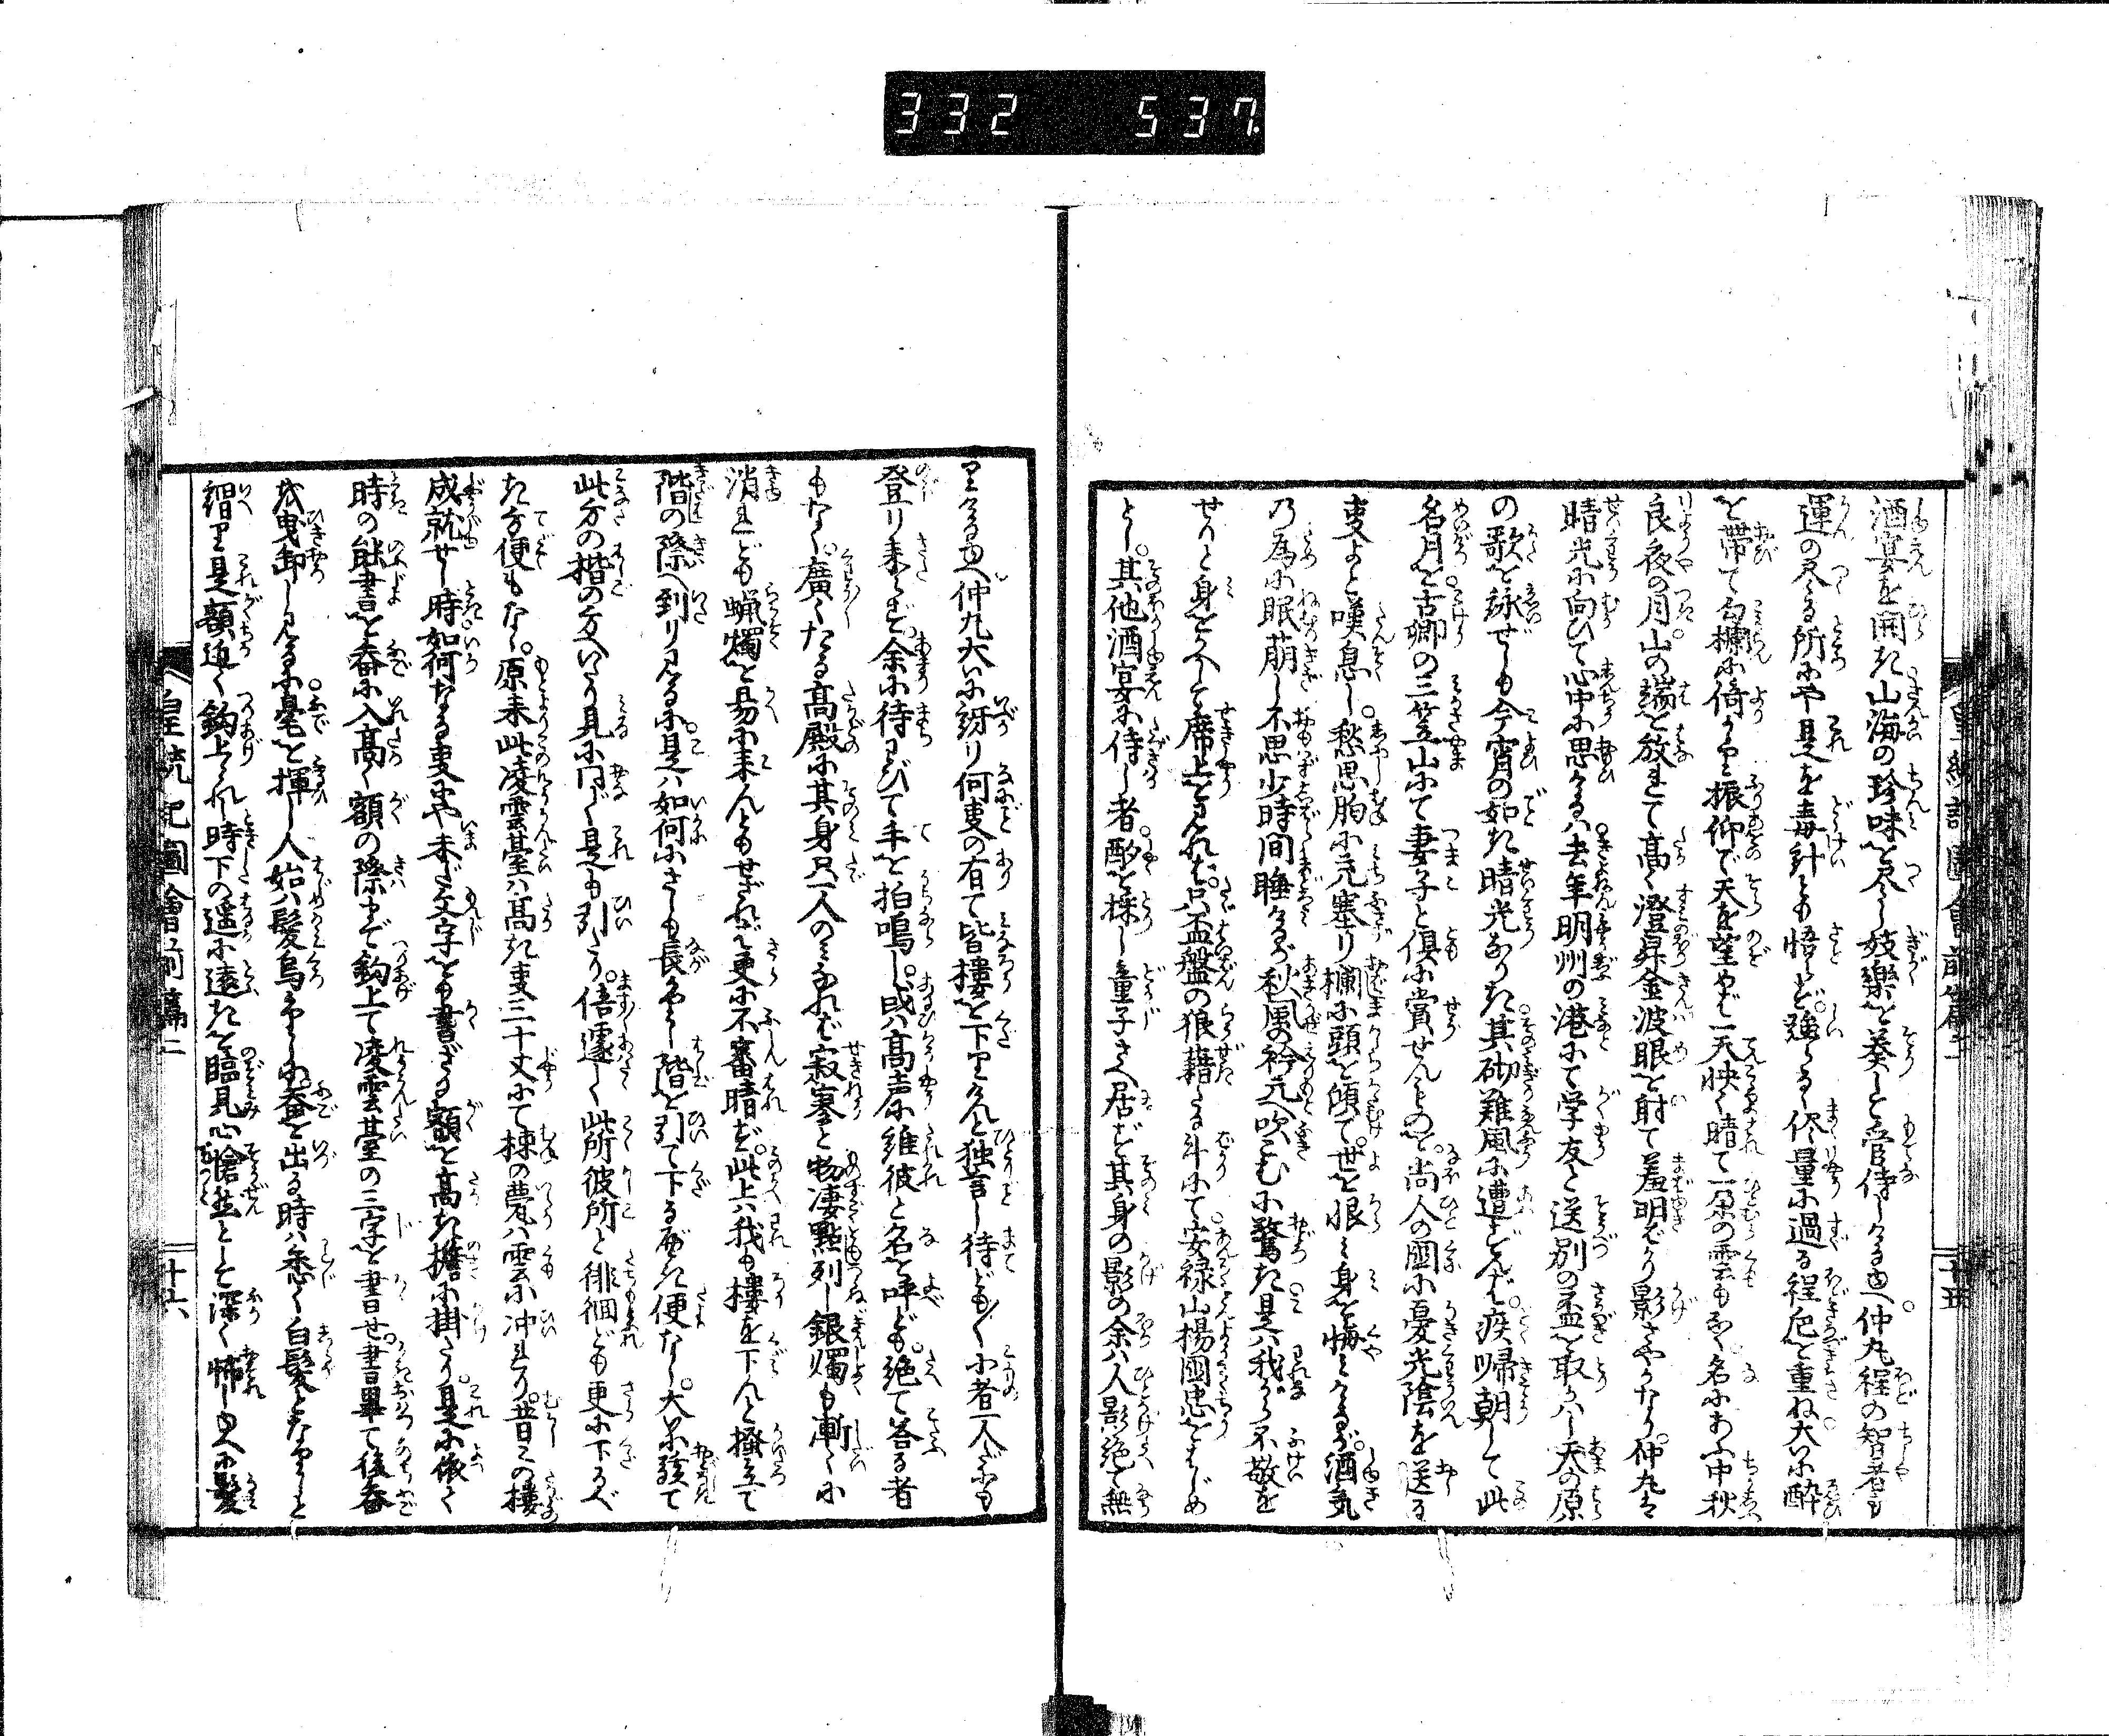 332 537.
酒宴を開き山海の珍味を尽し妓樂を奏して管待しける由へ仲丸程の智者も
運の尽る所にや是を毒計とも悟らで強らるゝ侭量に過る程巵を重ね大いに酔
を帯て勾欄に倚かゝり振仰で天を望めば一天快く晴て一朶の雲もなく名にあふ中秋
良夜の月山の端を放れて高く澄昇金波眼を射て羞明ばかり影さやかなり仲丸は
晴光に向ひて心中に思ひけるは去年明州の港にて学友と送別の盃を取かはし天の原
の歌を詠ぜしも今宵の如き晴光なりき其砌難風に遭ずんば疾帰朝して此
名月を古郷の三笠山にて妻子と倶に賞せんものを尚人の國に憂光陰を送る
叓よと嘆息し愁思胸に充塞り欄に頭を傾て世を恨み身を悔みけるが酒気
乃為に眠萠し不思少時間睡けるが秋風の衿元へ吹こむに驚き是は我ながら不敬を
せりと身をかへして席上を見れば只盃盤の狼藉たる斗にて安禄山楊國忠をはじめ
とし其他酒宴に侍し者酌を採し童子さへ居ず其身の影の余は人影絶て無
皇統記圖會前篇二
十五
りける由へ仲丸大いに訝り何叓の有て皆樓を下りけんと独言し待ども〳〵小者一人だにも
登り来らず余に待わびて手を拍鳴し或は高声に維彼と名を呼ども絶て答る者
もなく廣々たる高殿に其身只一人のみなれば寂寞と物凄點列し銀燭も漸々に
消れども蝋燭を易に来んともせざれば更に不審晴ず此上は我も樓を下んと掻立て
階の際へ到り見るに是は如何にさしも長かりし階を引て下るべき便なし大に駭て
此方の楷の方へいたり見に同じく是も引たり倍遽しく此所彼所と徘徊ども更に下るべ
き方便もなし原来此凌雲臺は高き叓三十丈にて棟の甍は雲に冲れり昔この樓
成就せし時如何なる叓にや未だ文字をも書ざる額を高き擔に掛たり是に依て
時の能書を畚に入高く額の際まで鈎上て凌雲臺の三字を書せ書畢て後畚
を曳卸し見るに毫を揮し人始は髪烏かりしに畚を出る時は悉く白髪となりしと
繧り是額近く鈎上られし時下の遥に遠きを臨見心愴然として深く怖し由へに髪
皇統記圖會前篇二
十六